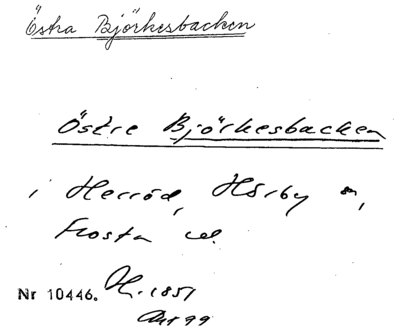 Östra Björkesbacken
Östre Björkesbacken
i Herröd, Hörby sn,
Frosta
Nr 10446. H. 1851
Akt 99